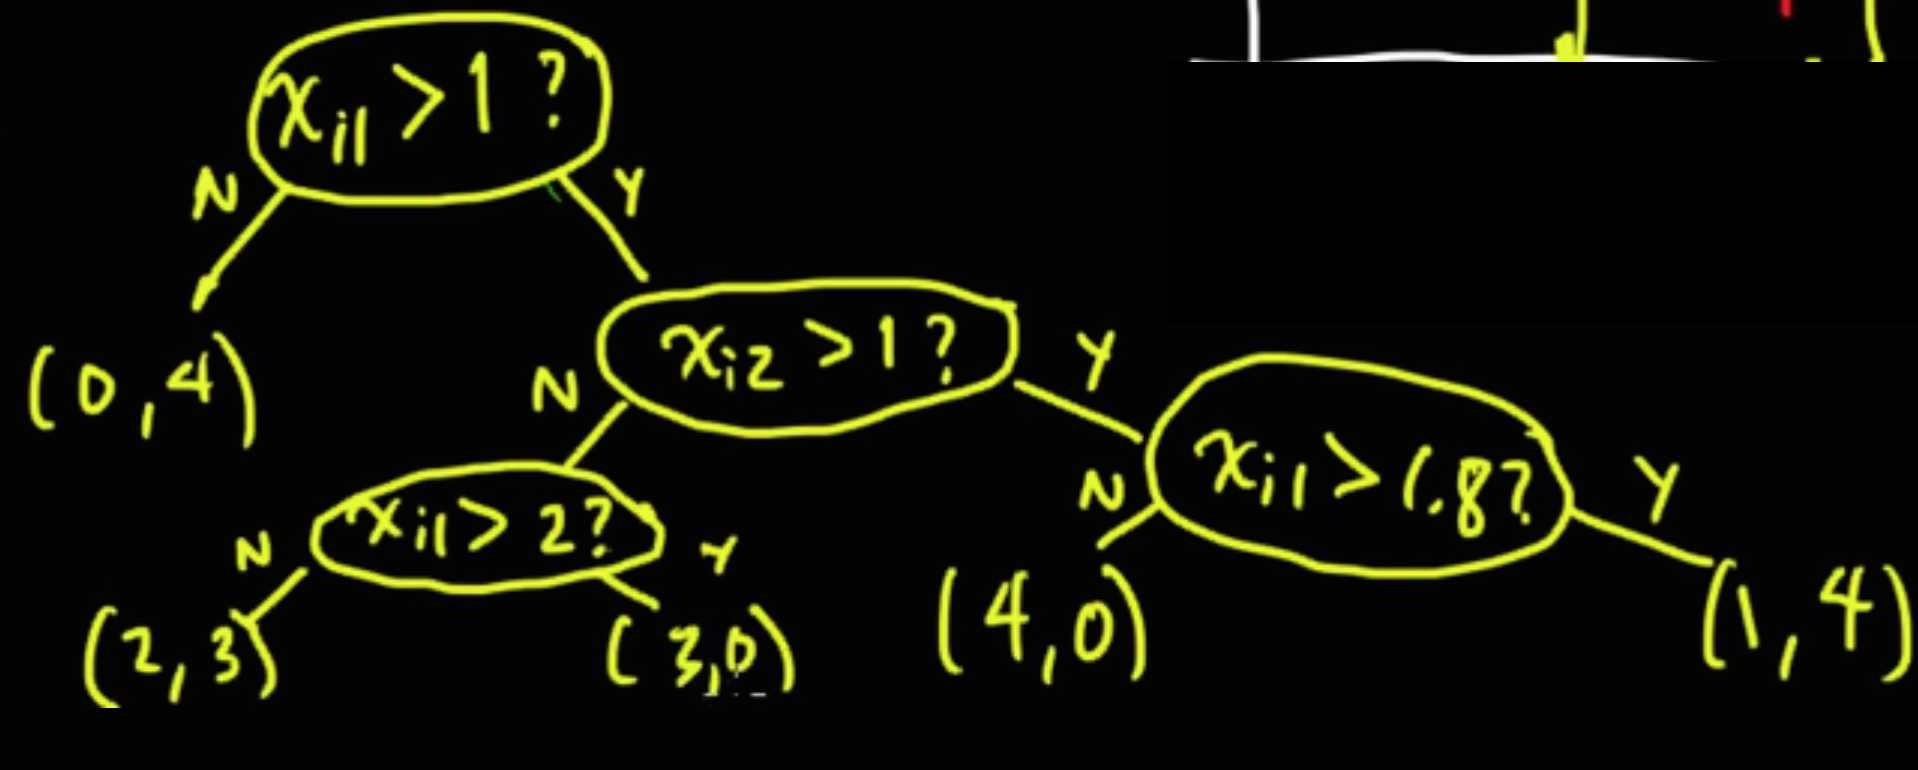 x_{i1} > 1 ?
N Y
(0,4)
x_{i2} > 1 ?
N Y
x_{i1} > 2?
N Y
(2,3) (3,0)
x_{i1} > 1.8?
N Y
(4,0) (1,4)